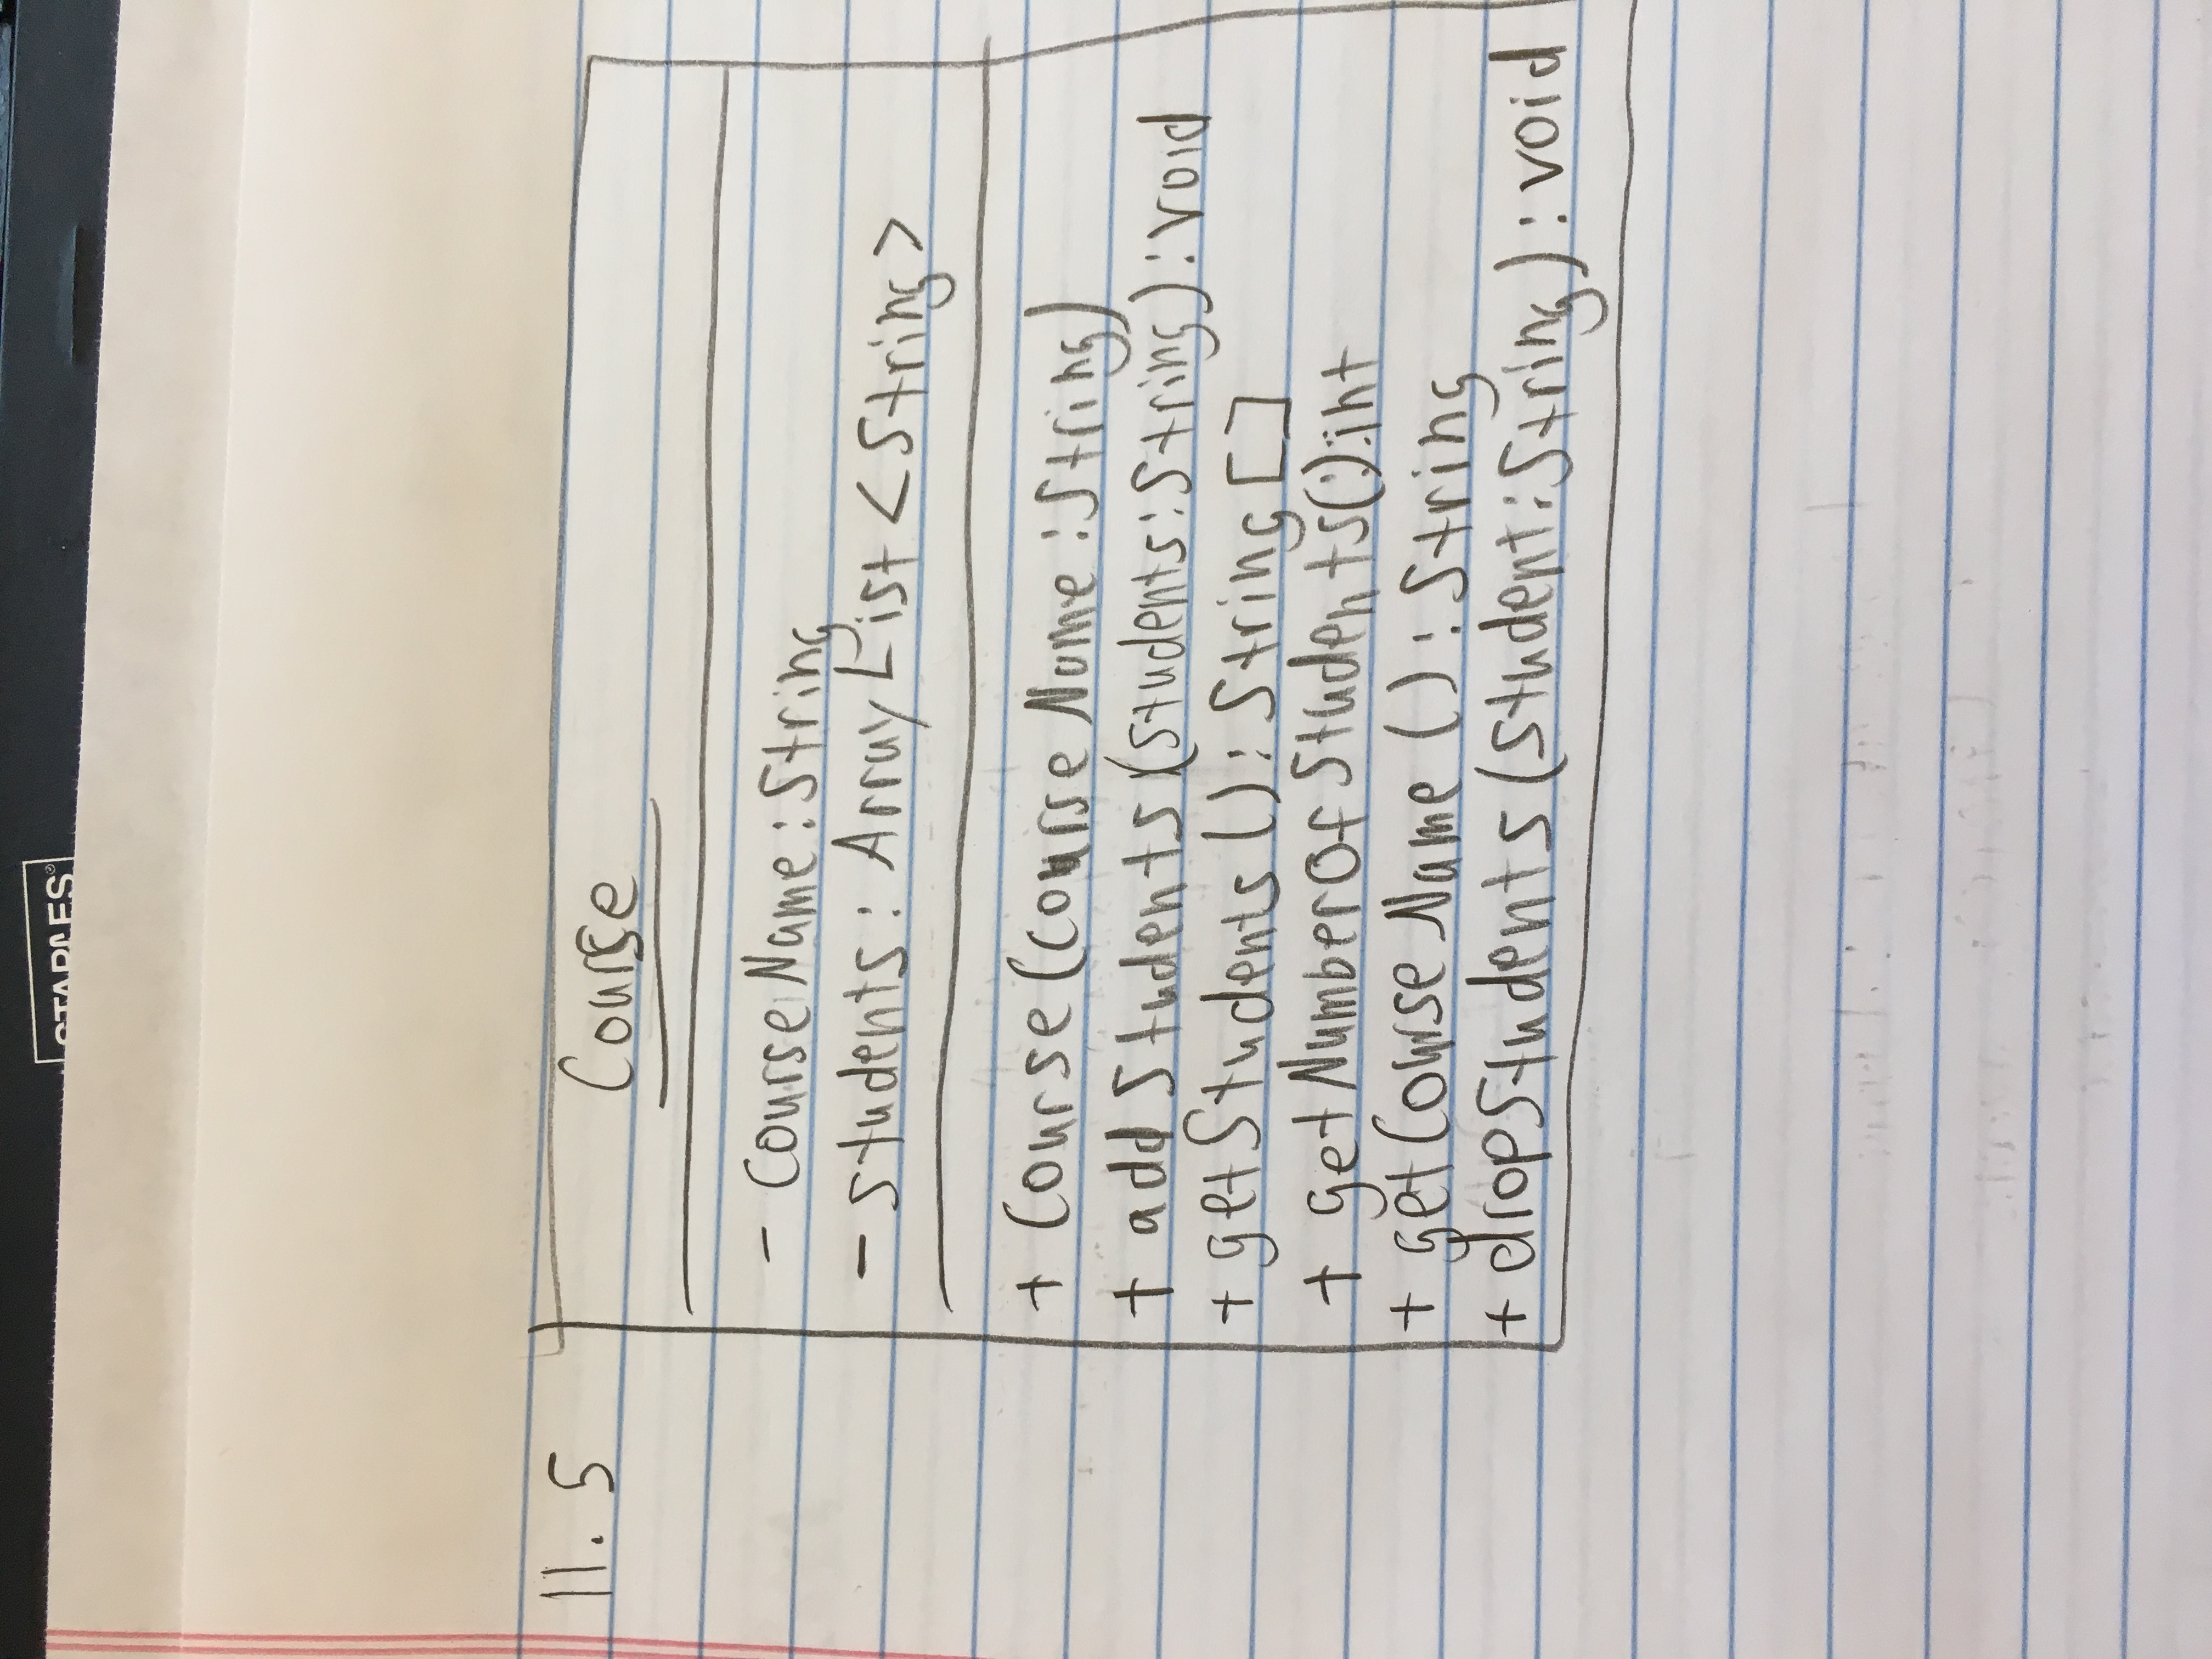 STAPLES
11.5
Course
- CourseName: String
- students: ArrayList <String>
+ Course(courseName: String)
+ addStudents(students: String): void
+ getStudents(): String[]
+ getNumberOfStudents(): int
+ getCourseName(): String
+ dropStudents(student: String): void